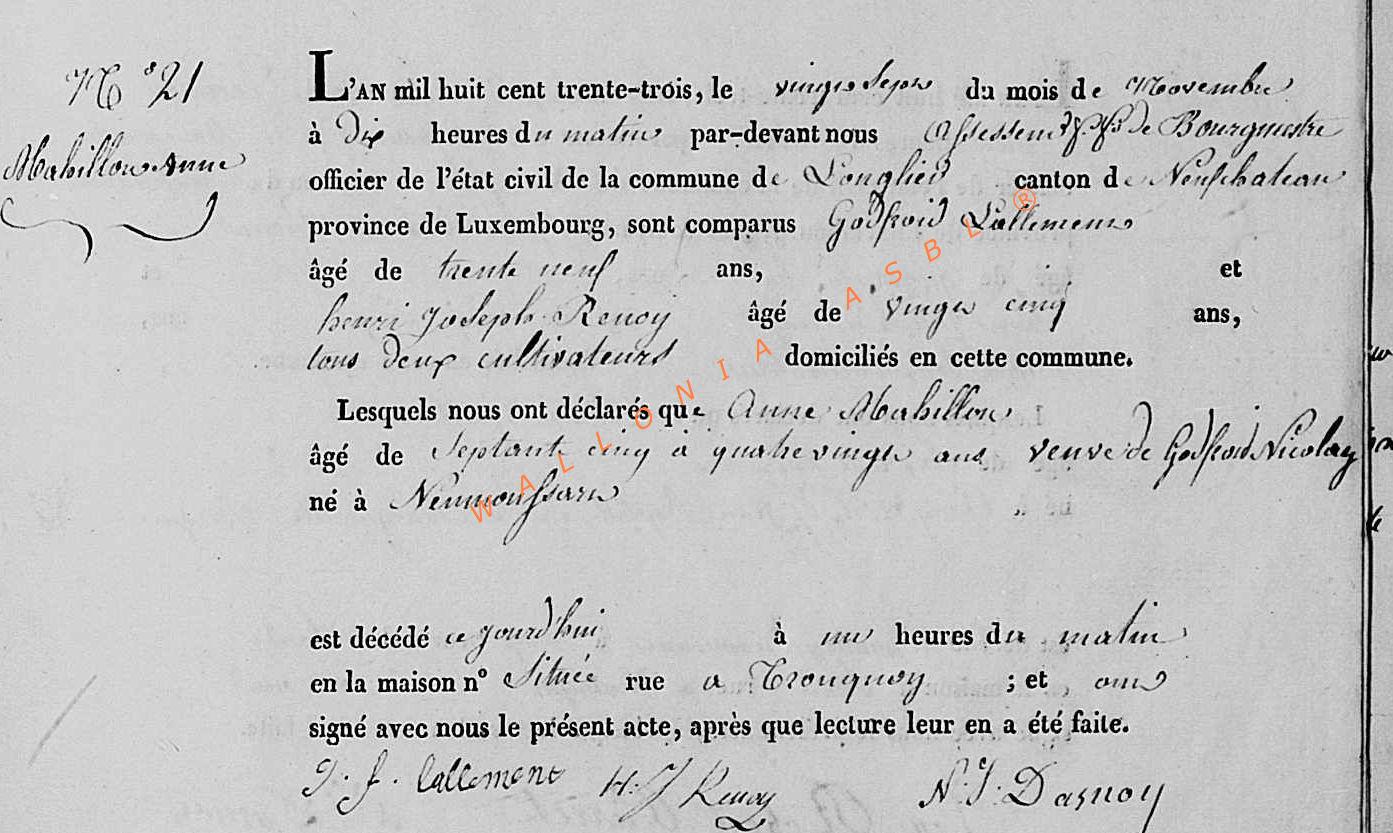 N° 21
Mabillon Anne
L'AN mil huit cent trente-trois, le vingt sept du mois de Novembre
à dix heures du matin par-devant nous Assesseur de Bourgmestre
officier de l'état civil de la commune de Longlier canton de Neufchateau
province de Luxembourg, sont comparus Godfroid Lallement
âgé de trente neuf ans, et
henri Joseph Renoy âgé de vingt cinq ans,
tous deux cultivateurs domiciliés en cette commune.
Lesquels nous ont déclarés que Anne Mabillon
âgé de septante cinq a quatre vingt ans veuve de Godfroid Nicolay
né à
est décédé ce jourd'hui à une heures du matin
en la maison n° située rue a Tronquoy ; et ont
signé avec nous le présent acte, après que lecture leur en a été faite.
J. f. lallement H. J Renoy N. J. Dasnoy
WALLONIA ASBL ®